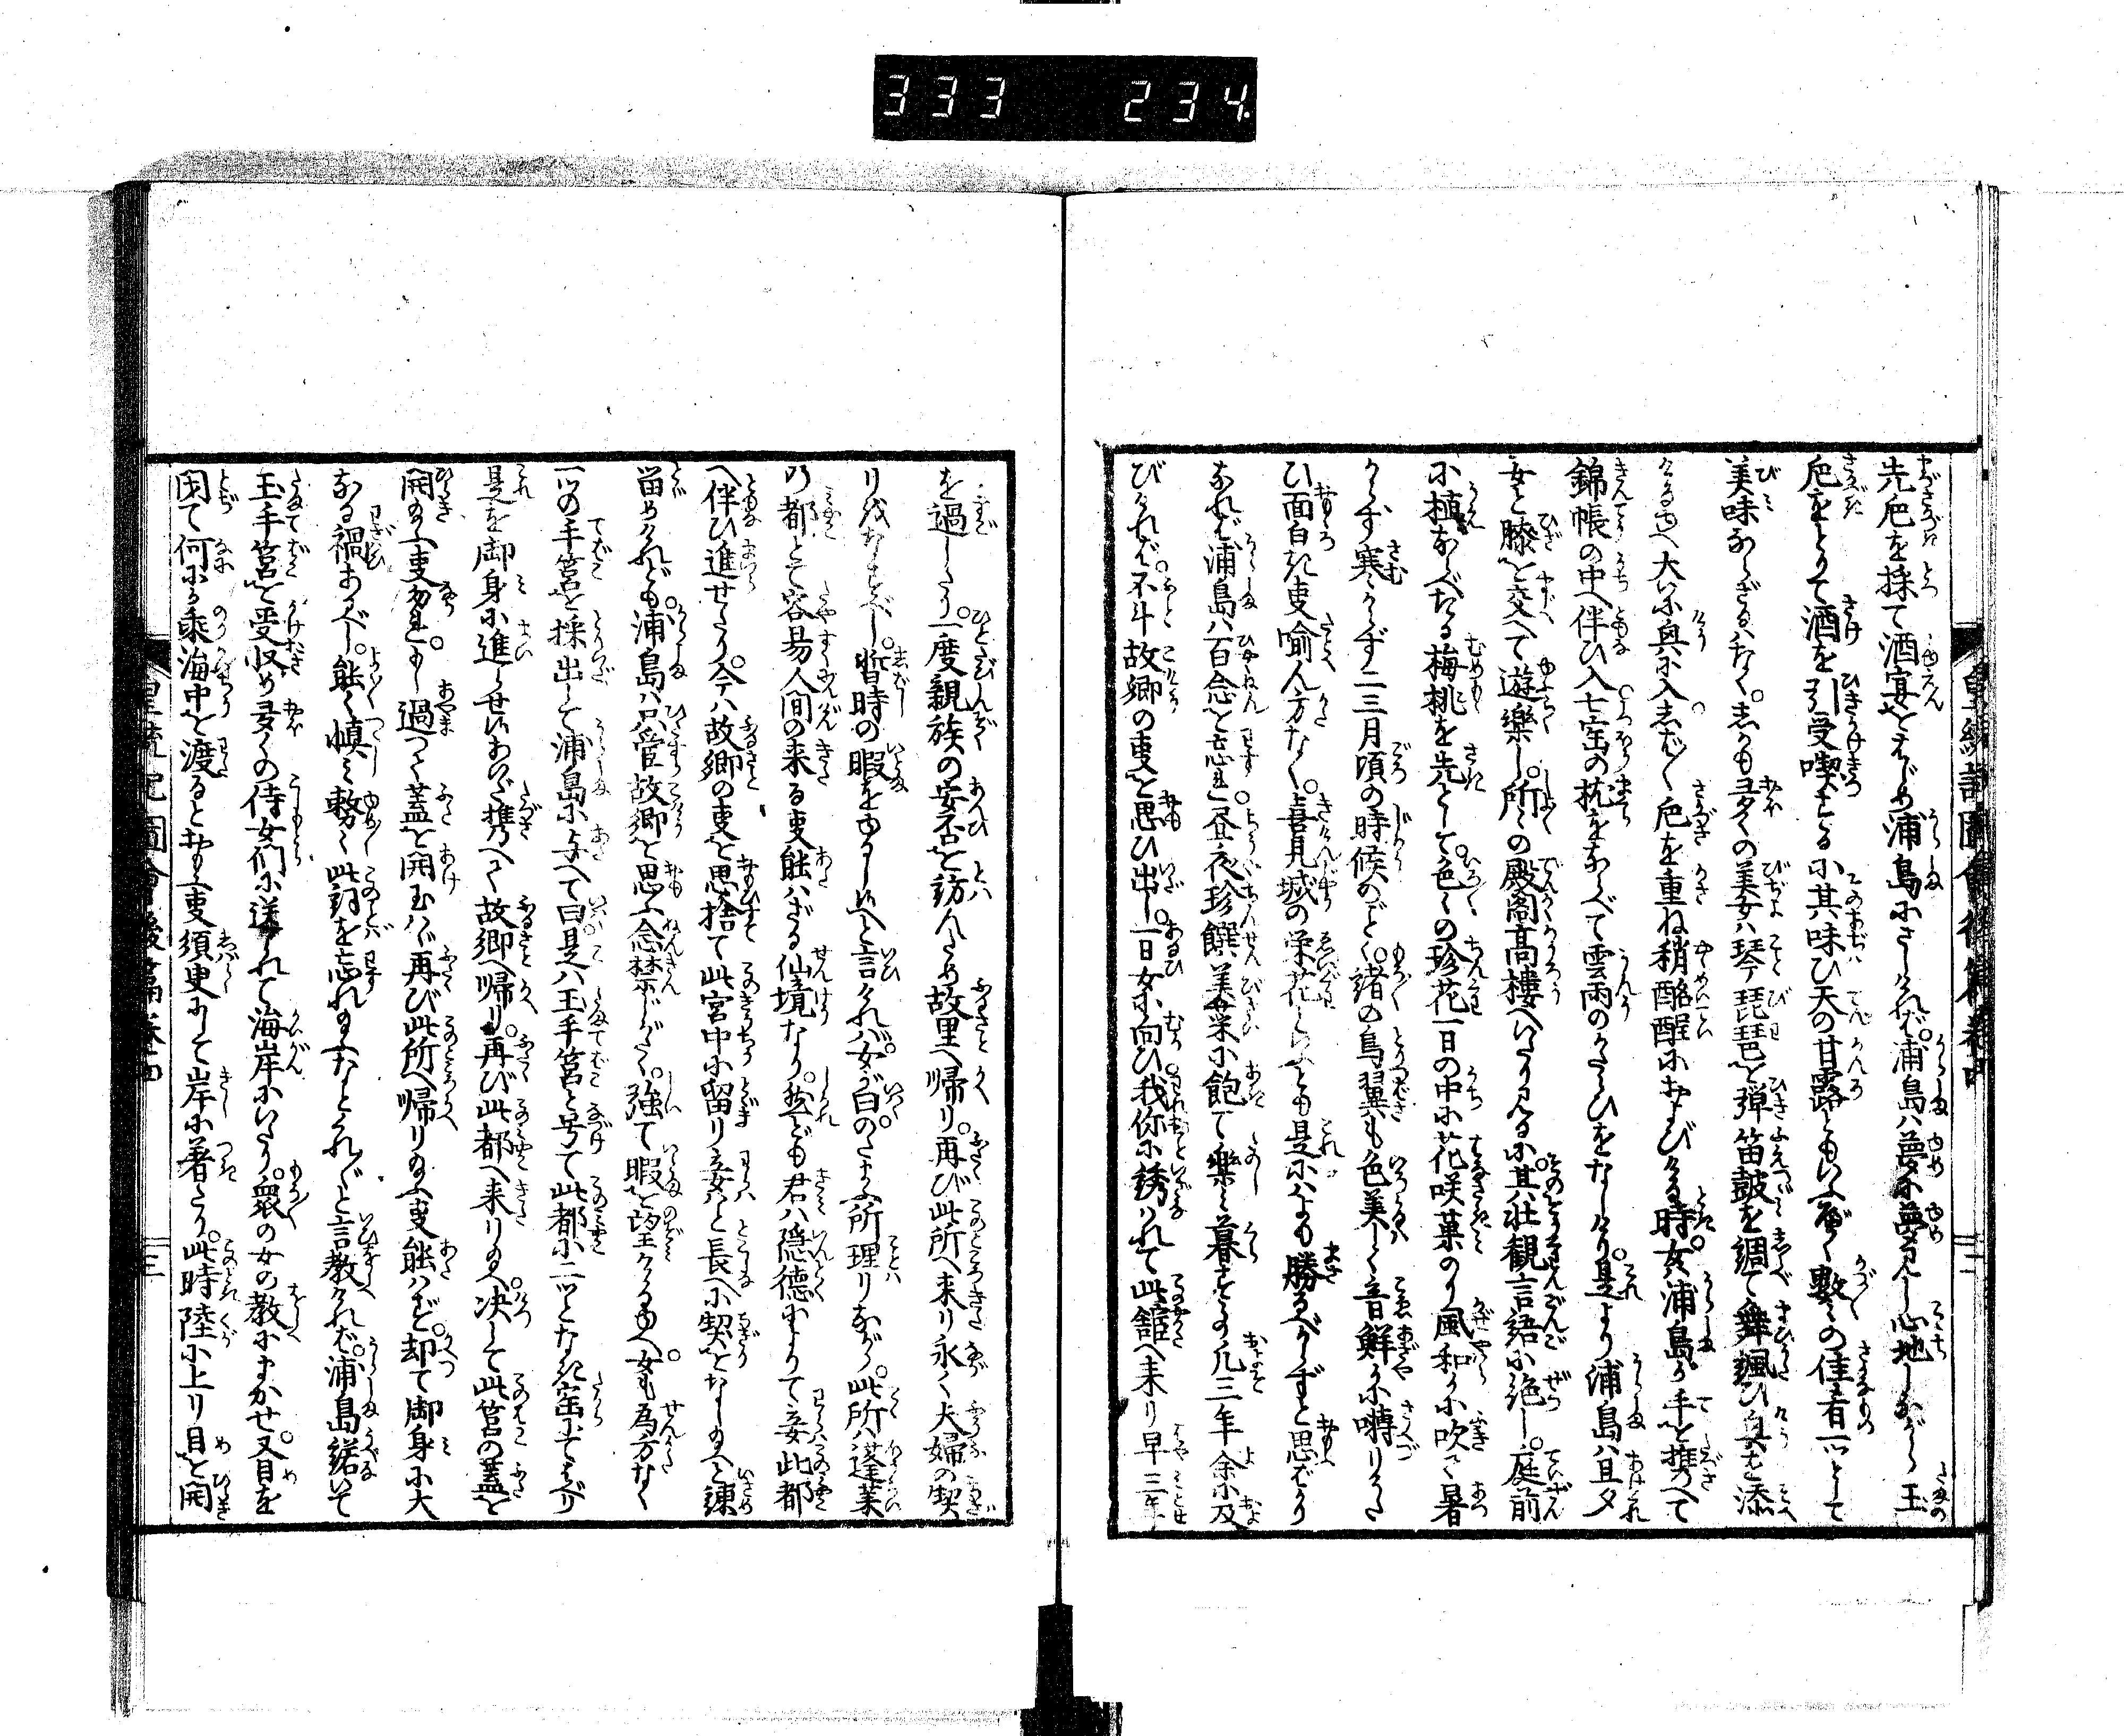 333 234
先巵を採て酒宴をはじめ浦島にさしければ。浦島ハ夢に夢見し心地しながら玉
巵をとりて酒を引受喫するに其味ひ天の甘露ともいふべく數々の佳肴一ッとして
美味ならざるハなく。しかも多くの美女ハ琴琵琶を弾笛鼓を調て舞颯ひ興を添
けるゆへ大いに興に入しば〳〵巵を重ね稍酩酊におよびける時。女浦島が手を携へて
錦帳の中へ伴ひ入七宝の枕をならべて雲雨のかたらひをなしけり。是より浦島ハ旦夕
女と膝を交へて遊樂し。所々の殿閣高樓へいたり見るに。其壮観言語に絶し。庭前
に植ならべたる梅桃を先として。色々の珍花一日の中に花咲菓のり風和かに吹て暑
からず寒からず二三月頃の時候のごとく。諸の鳥翼も色美しく音鮮かに囀りかた
ひ面白き事喩ん方なく。喜見城の栄花といふとも是にハよも勝るべからずと思ふばかり
なれバ浦島ハ百念を忘れ。昼夜珍饌美菜に飽て樂く暮すこと凡三年余に及
びけれバ。不斗故郷の事を思ひ出し。一日女に向ひ我你に誘ハれて此館へ来り早三年
を過したり。一度親族の安否を訪んため故里へ帰り。再び此所へ来り永く夫婦の契
りをなすべし。暫時の暇をゆるし給へと言けれバ。女が白。のたまふ所理りながら。此所ハ蓬莱
の都とて容易人間の来る事能ハざる仙境なり。然ども君ハ隠徳によりて妾此都
へ伴ひ進せたり。今ハ故郷の事を思捨て此宮中に留り妾と長へに契をなし給へと諫
留めけれども。浦島ハ只管故郷を思ふ念禁じがたく。強て暇を望けるゆへ。女も為方なく
一ッの手筥を採出して浦島に与へて曰。是ハ玉手筥と号て此都に二ッとなき宝にて侍り
是を御身に進らせ候あいだ携へて故郷へ帰り。再び此都へ来り給へ。决して此筥の蓋を
開給ふ事勿れ。もし過つて蓋を開玉ハゞ再び此所へ帰り給ふ事能ハず。却て御身に大
なる禍あるべし。能々慎み敕々此詞を忘れ給ふなとくれ〴〵と言教けれバ。浦島諾いて
玉手筥を受収め多くの侍女們に送られて海岸にいたり。衆の女の教にまかせ。又目を
閉て何にか乘海中を渡ると思ふ事須臾にして岸に著たり。此時陸に上り目を開